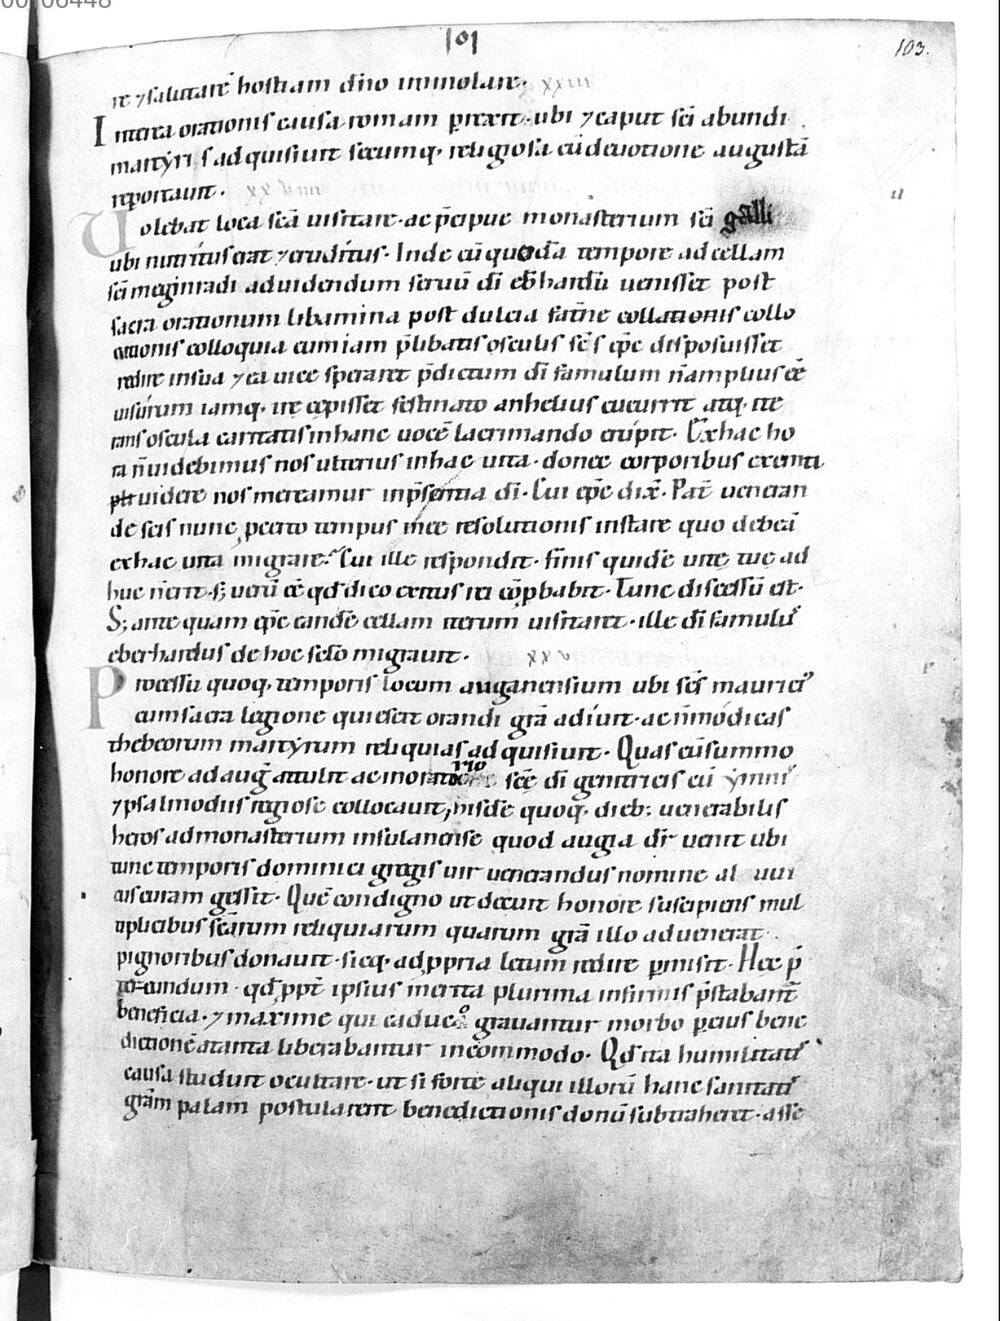 101
103.
re ⁊ salutarē hostiam dño immolare. xxiii
Interea orationis causa romam p̄rexit · ubi ⁊ caput sc̄i abundi
martyris adquisiuit secumq; religiosa cū deuotione augustā
reportauit. xxiiii
Uolebat loca sc̄a uisitare · ac p̄cipue monasterium sc̄i galli
u
ubi nutritus erat ⁊ eruditus. Inde cū quodā tempore ad cellam
sc̄i meginradi ad uidendum seruū dī eb̄hardū uenisset post
sacra orationum libamina post dulcia fat̄ne collationis collo
cutionis colloquia cum iam p̄libatis osculis sēs ep̄c disposuisset
redire in sua ⁊ ea uice speraret p̄dictum dī famulum n̄ amplius eē
uisurum iamq; ire cepisset festinato anhelius cucurrit atq; ite
rans oscula caritatis in hanc uocē lacrimando erupit. Ex hac ho
ra n̄ uidebimus nos ulterius in hac uita · donec corporibus exempti
uidere nos mereamur in p̄sentia dī. Cui ep̄c dix̄. Pat̄ ueneran
de scis nunc p̄certo tempus meę resolutionis instare quo debeā
ex hac uita migrare. Cui ille respondit · finis quidē uitę tuę ad
huc n̄ erit · s; uerū eē qd̄ dico exitus rei cōp̄babit. Tunc discessū est.
S; ante quam ep̄c eandē cellam iterum uisitaret · ille dī famulus
eberhardus de hoc sc̄lo migrauit. xxv
Processu quoq; temporis locum auganensium ubi sc̄s mauricius
cum sacra legione quiescit orandi grā adiuit · ac n̄ modicas
thebeorum martyrum reliquias adquisiuit. Quas cū summo
honore ad auḡ attulit ac in oratorio sc̄ę dī genitricis cū ymnis
⁊ psalmodiis regiose collocauit, hisdē quoq; dieb; uenerabilis
heros ad monasterium insulanense quod augia dr̄ uenit ubi
tunc temporis dominici gregis uir uenerandus nomine al uui
cus curam gessit. Quē condigno ut decuit honore suscipiens mul
tiplicibus sc̄arum reliquiarum quarum grā illo aduenerat
pignoribus donauit · sicq; ad p̄pria letum redire p̄misit. Hec p̄
beneficia · ⁊ maxime qui caduco grauantur morbo p̄ eius bene
dictionē a tanta liberabantur incommodo. Qd̄ ita humilitatis
causa studuit occultare · ut si forte aliqui illorū hanc sanitatis
grām palam postularent benedictionis donū subtraheret · asse